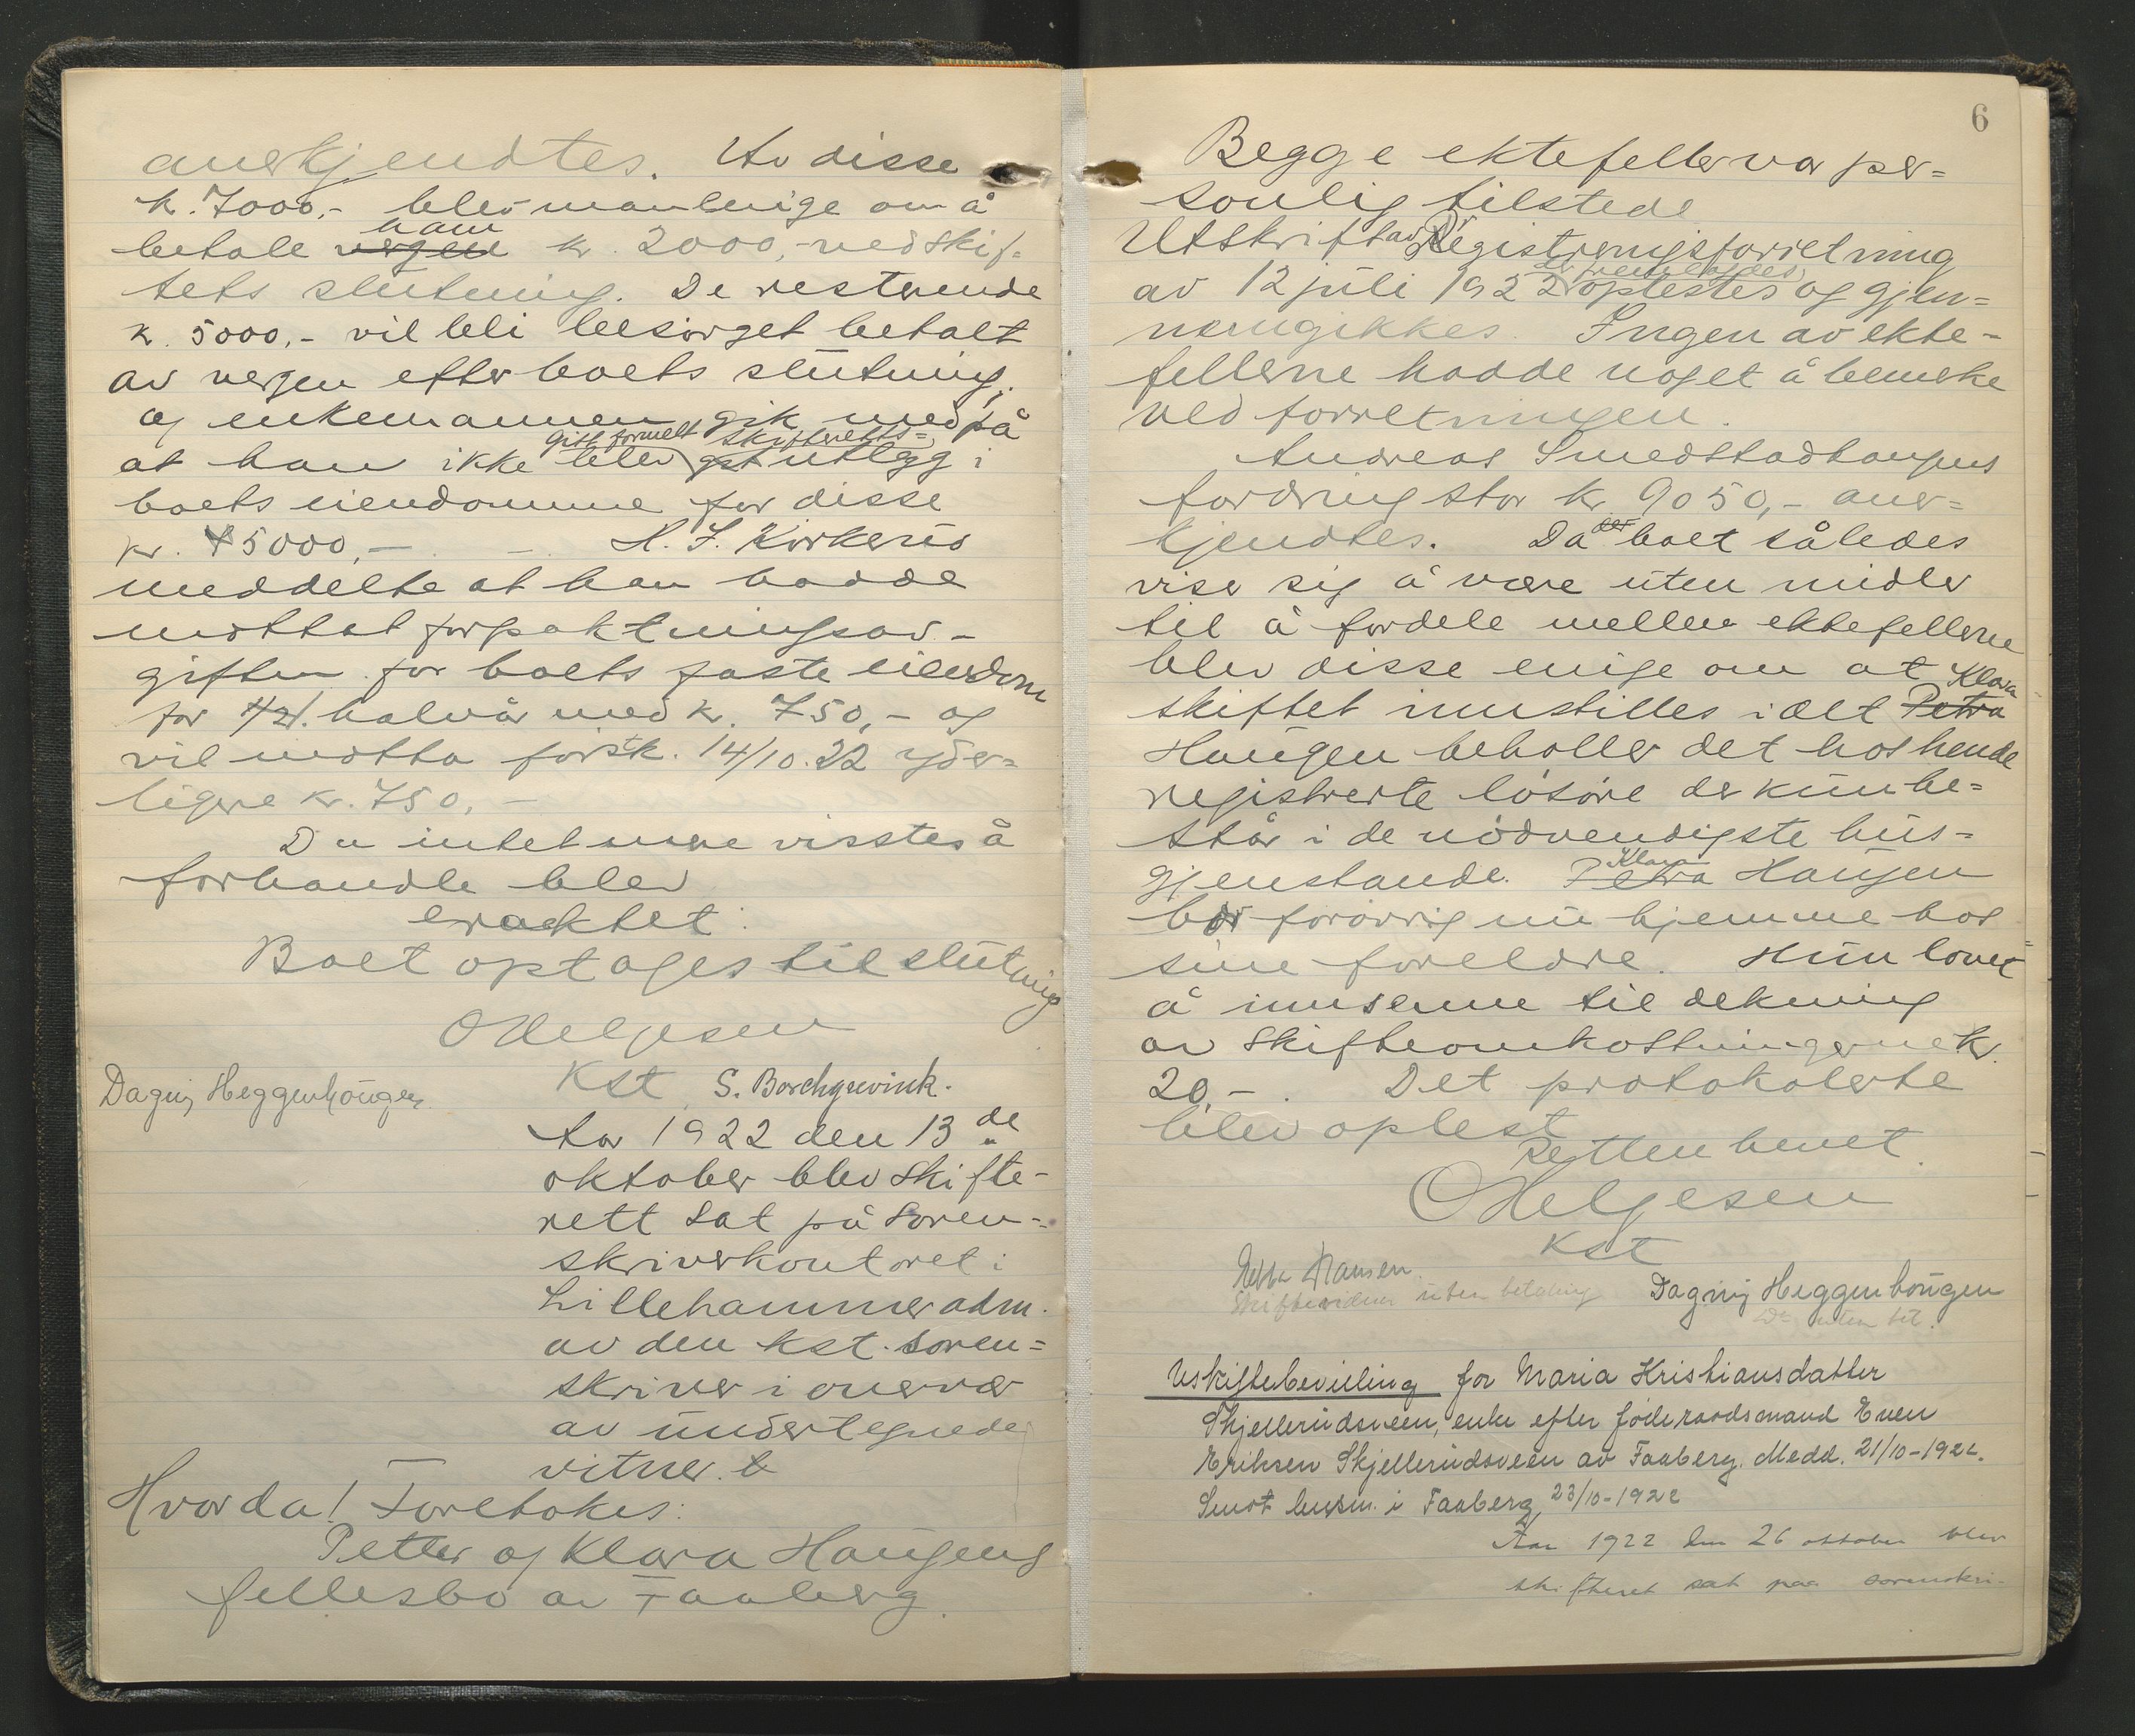 anerkjendtes. Av disse
kr. 7000,- blev man enige om å
ham
betale vergen kr. 2000,- ved skif=
tets slutning. De resterende
kr. 5000.- vil bli besørget betalt
av vergen efter boets slutning,
og enkemannen gik med på
gitt formelt skifteretts=
at han ikke blev git utlegg i
boets eiendomme for disse
kr. 5000,- H. J. Kirkerud
meddelte at han hadde
mottat forpaktningsav-
giften for boets faste eiendom
for 1ste halvår med kr. 750,- og
vil motta förstk. 14/10.22 yder=
ligere kr. 750,-
Da intet mere visstes å
forhandle blev
eraktet:
Boet optages til slutning
O Helgesen
Kst S. Borchgrevink.
Dagny Heggenhougen
Aar 1922 den 13de
oktober blev skifte-
rett sat på Soren-
skriverkontoret i
Lillehammer adm.
av den kst. soren=
skriver i overvær
av undertegnede
vitner.
Hvorda! Foretokes:
Petter og Klara Haugens
fellesbo av Faaberg.
6
Begge ektefeller var per=
sonlig tilstede
Utskrift av Registreringsforretning
fremlagdes,
av 12 juli 1922 oplestes og gjen=
nemgikkes. Ingen av ekte-
fellerne hadde noget å bemerke
ved forretningen.
Andreas Smedstadhaugens
fordring stor kr 9050,- aner=
kjendtes. Da boet således
viser sig å være uten midler
til å fordele mellem ektefellerne
blev disse enige om at
Klara
skiftet innstilles idet Petra
Haugen beholler det hos hende
registrerte lösöre der kun be=
står i de nödvendigste hus=
Klara
gjenstande. Petra Haugen
bor forövrig nu hjemme hos
sine foreldre. Hun lovet
å innsenne til dekning
av skifteomkostningerne kr.
20,-. Det protokolerte
blev oplest
Retten hevet.
O Helgesen
Kst
Ebba Hansen
Skiftevidne uten betaling
Dagny Heggenhougen
Do uten bet.
Uskiftebevilling for Maria Kristiansdatter
Skjellerudsveen, enke efter föderaadsmand Even
Eriksen Skjellerudsveen av Faaberg. Medd. 21/10-1922.
Sendt lensm. i Faaberg 23/10-1922
Aar 1922 den 26 oktober blev
skifteret sat paa sorenskri-